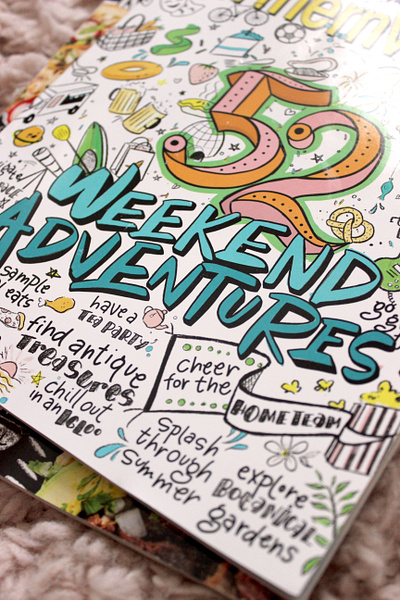 52
WEEKEND
ADVENTURES
sample
eats
have a
TEA PARTY
find antique
treasures
chillout
in an igloo
Cheer
for the
HOME TEAM
splash
through
summer
explore
BOTANICAL
gardens